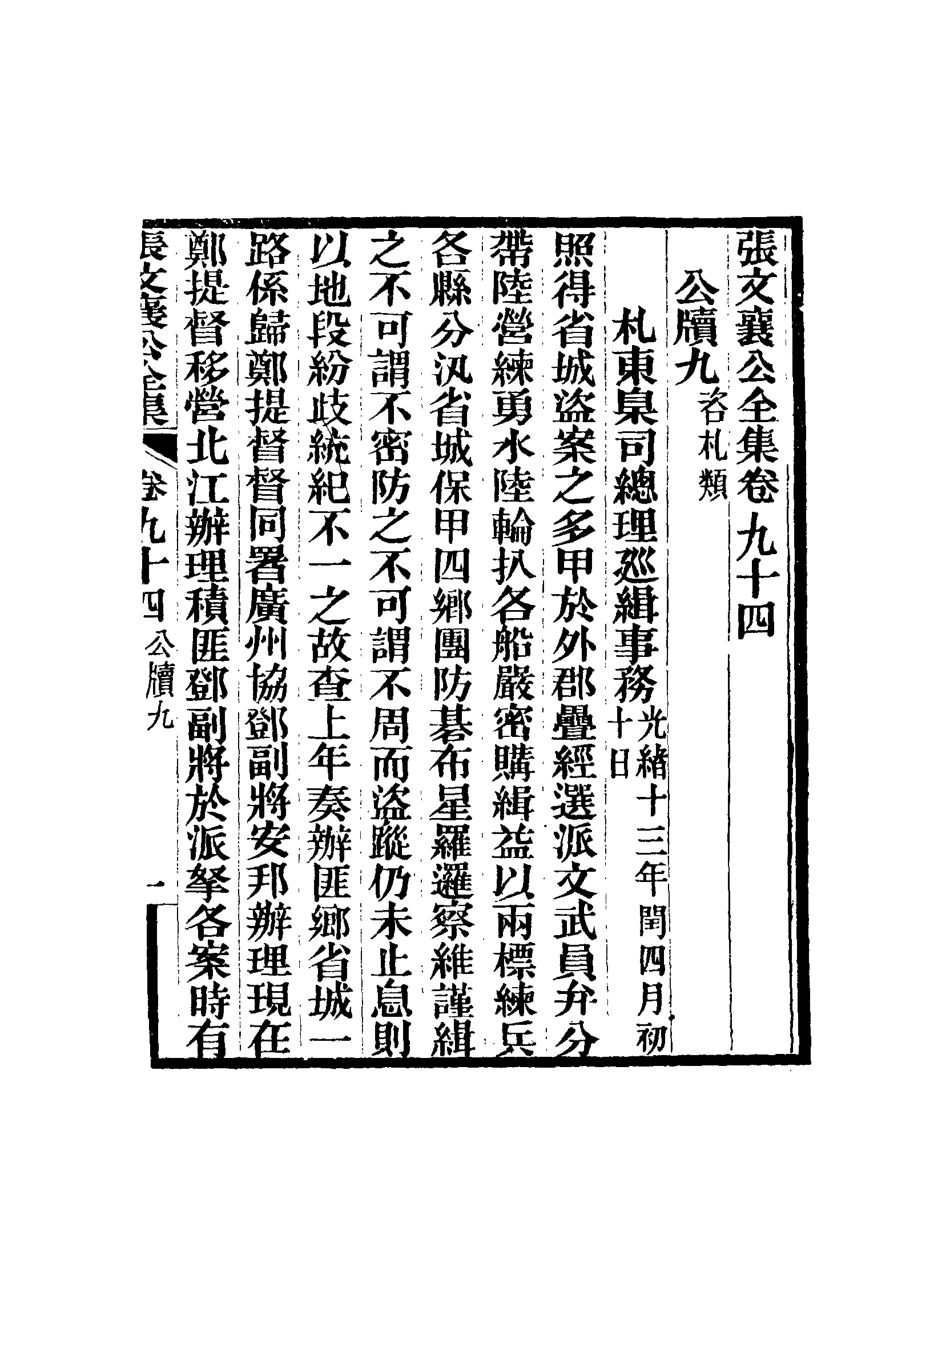 張文襄公全集卷九十四
公牘九咨札類
札東臬司總理巡緝事務光緒十三年閏四月初十日
照得省城盜案之多甲於外郡疊經選派文武員弁分
帶陸營練勇水陸輪扒各船嚴密購緝益以兩標練兵
各縣分汛省城保甲四鄉團防碁布星羅邏察維謹緝
之不可謂不密防之不可謂不周而盜蹤仍未止息則
以地段紛歧統紀不一之故查上年奏辦匪鄉省城一
路係歸鄭提督督同署廣州協鄧副將安邦辦理現在
鄭提督移營北江辦理積匪鄧副將於派拏各案時有
張文襄公全集 卷九十四公牘九 一